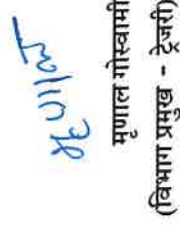 मृणाल
मृणाल गोस्वामी
(विभाग प्रमुख - ट्रेजरी)